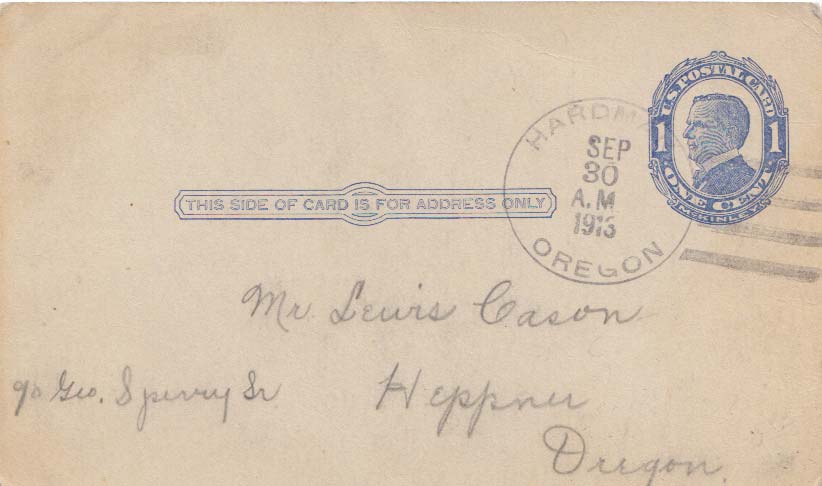 U.S. POSTAL CARD
1 1
ONE CENT
McKINLEY
HARDMAN
SEP
30
A.M
1913
OREGON
THIS SIDE OF CARD IS FOR ADDRESS ONLY
Mr. Lewis Cason
c/o Geo. Sperry Sr
Heppner
Oregon.